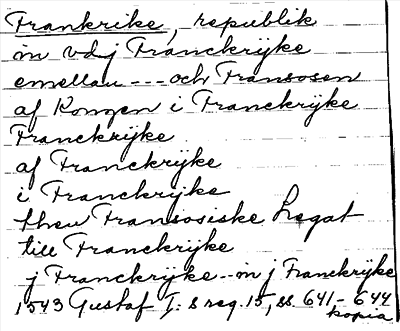 Frankrike, republik
in vdj Franckrijke
emellan --- och Fransosen
af Kongen i Franckrijke
Franckrijke
af Franckrijke
i Franckrijke
then Fransosiske Legat
till Franckrijke
j Franckrijke - in j Franckrijke
1543 Gustaf I:s reg. 15, ss. 641-644
kopia